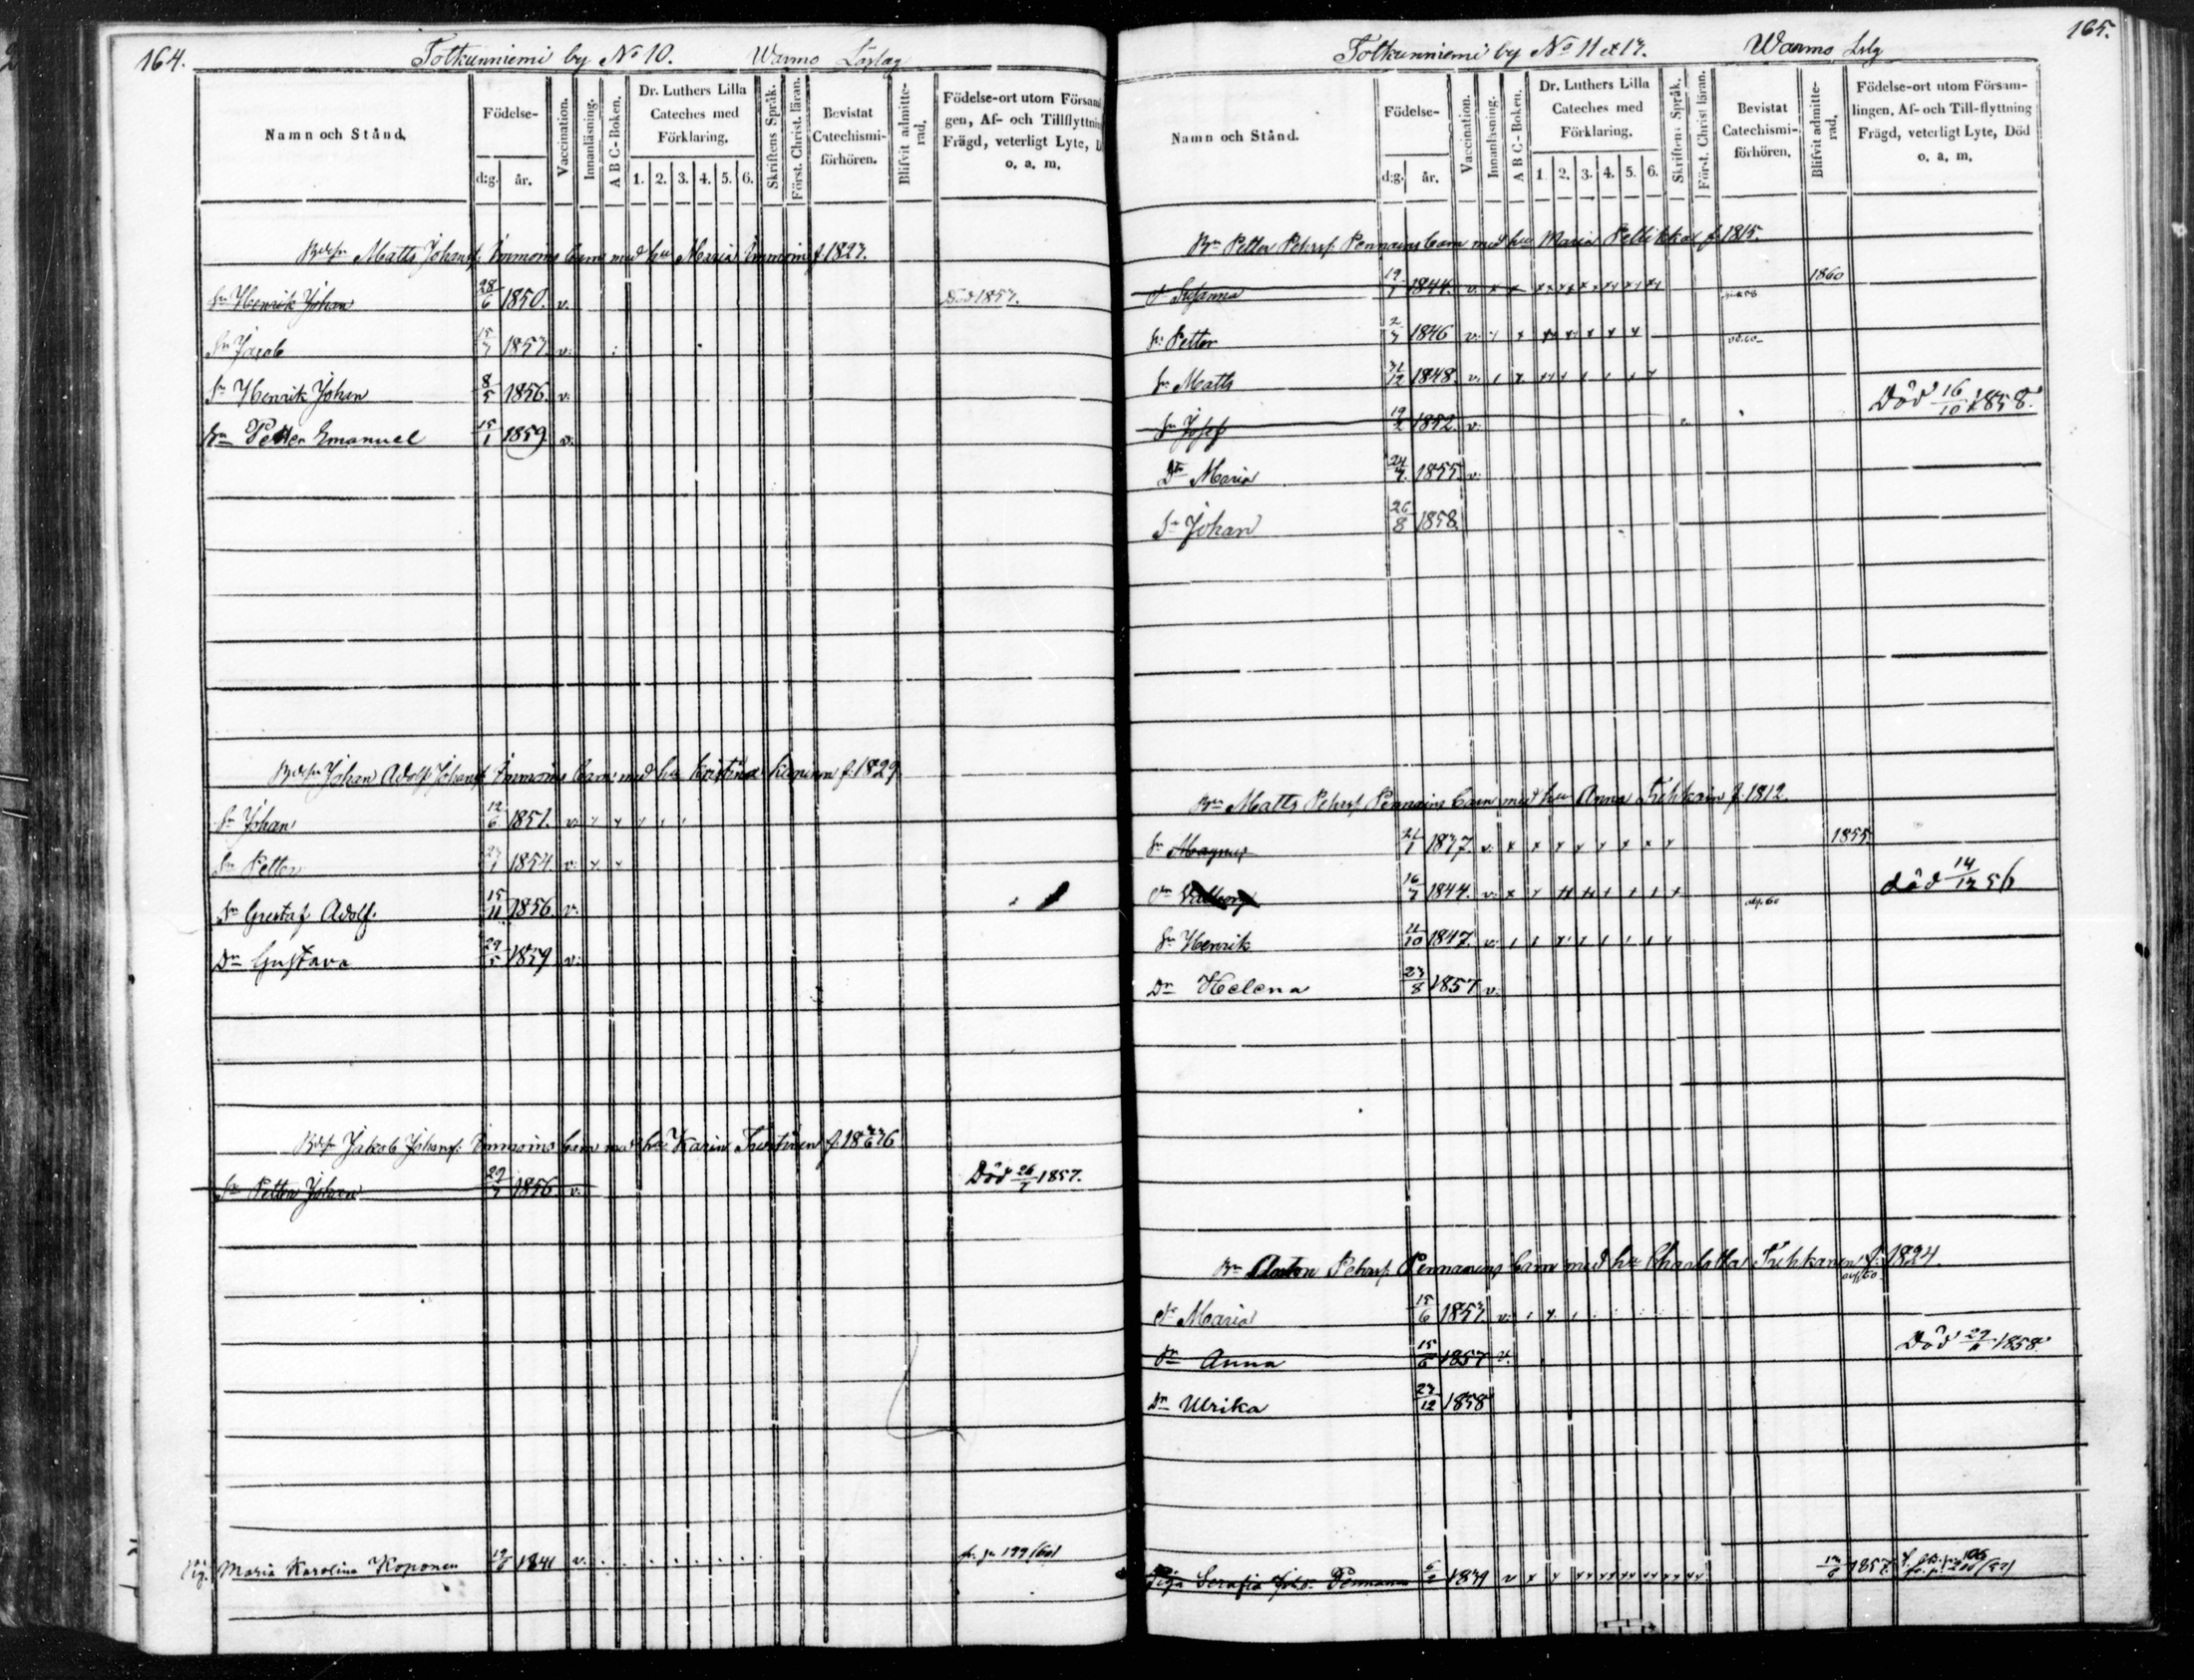 164.
Totkunniemi by No 10. Warmo Löslag
Namn och Stånd.
Födelse-
d:g. år.
Vaccination.
Innanläsning.
A B C-Boken.
Dr. Luthers Lilla
Cateches med
Förklaring.
1. 2. 3. 4. 5. 6.
Skriftens Språk.
Först. Christ. läran.
Bevistat
Catechismi-
förhören.
Blifvit admitte-
rad.
Födelse-ort utom Församl
gen, Af- och Tillflyttnin
Frägd, veterligt Lyte, D
o. a. m.
Matts Johans: Immoins barn med hu Maria Immoin f. 1823.
Sn Henrik Johan 28/6 1850. v. Död 1853.
Sn Jacob 15/3 1853. v.
Sn Henrik Johan 8/5 1856. v.
Sn Petter Emanuel 15/1 1859 v.
Johan Adolf Johans: Immoins barn med hu Kristina f. 1829
Sn Johan 12/6 1851. v.
Sn Petter 1854. v.
Sn Gustaf Adolf. 15/11 1856 v.
Dr Gustava 29/5 1859 v.
Jakob Johans: Immoins barn med hu Karin f.
Sn Petter Johan 29/3 1856 v. Död 26/7 1857.
Pig. Maria Karolina Koponen 1841 v.
165.
Totkunniemi by No 11 et 13. Warmo Lslg
Namn och Stånd.
Födelse-
d:g. år.
Vaccination.
Innanläsning.
A B C-Boken.
Dr. Luthers Lilla
Cateches med
Förklaring.
1. 2. 3. 4. 5. 6.
Skriftens Språk.
Först. Christ läran.
Bevistat
Catechismi-
förhören.
Blifvit admitte-
rad.
Födelse-ort utom Försam-
lingen, Af- och Till-flyttning
Frägd, veterligt Lyte, Död
o. a. m.
Bn Petter Pehrs: Pennains barn med hu Maria Pellikka f. 1815.
Susanna 19/1 1844. v. 1860
Sn Petter 2/3 1846 v.
Sn Matts 31/12 1848. v.
Sn Josef 19/2 1852. v. Död 16/10 1858.
Dr Maria 1855. v.
Sn Johan 26/8 1858.
Bn Matts Pehrs: Pennains barn med hu Anna Tuhkain f. 1812.
Sn Magnus 21/1 1837. v. 1855.
16/3 1844. v. död 14/12 56
Sn Henrik 21/10 1847. v.
Dr Helena 23/8 1857 v.
Bn Anton Pehrs: Pennanens barn med hu Charlotta Tuhkanen f. 1824.
Maria 15/6 1853 v.
Dr Anna 15/6 1857 v. Död 1858.
Dr Ulrika 23/12 1858
Piga Serafia Pennanen 1839 v 1857.